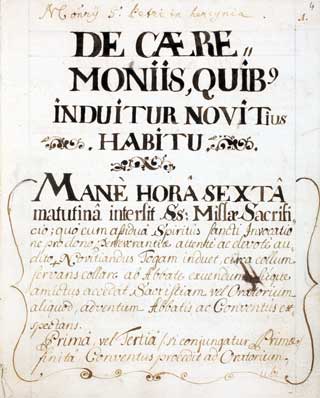 Monrij S. Petri in hercynia
4
1.
DE CÆRE„
MONIIS, QUIB9
INDUITUR NOVITius
HABITU
MANÈ HORÂ SEXTÂ
matutinâ intersit Ss: Missæ Sacrifi,
cio; quo cum assiduâ Spiritûs Sancti Invocatio
ne pro dono perseverantiæ attentè ac devotè au,
dito, Novitiandus Togam induet, circa collum
servans collare ab Abbate exuendum. Sicque
amictus accedat Sacristiam vel Oratorium
aliquod, adventum Abbatis ac Conventûs ex,
spectans.
Primâ, vel Tertiâ (si conjungatur Primæ
finitâ Conventus procedit ad Oratorium
ubi